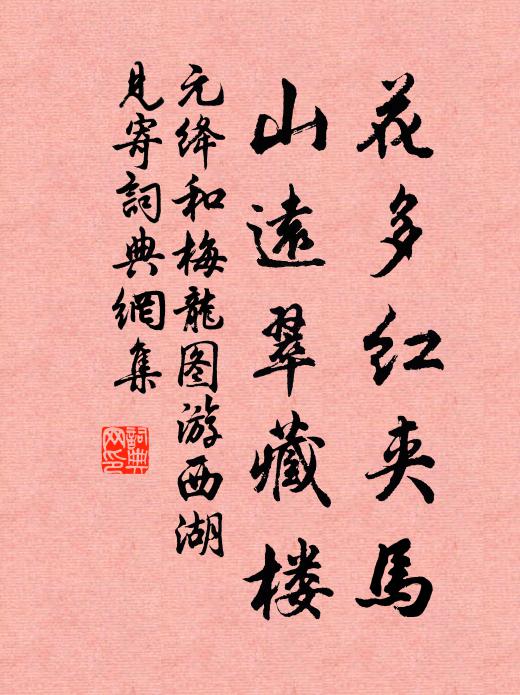 花多红夹馬
山遠翠藏楼
元绛和梅龍图游西湖
見寄詞典網集
詞典網印